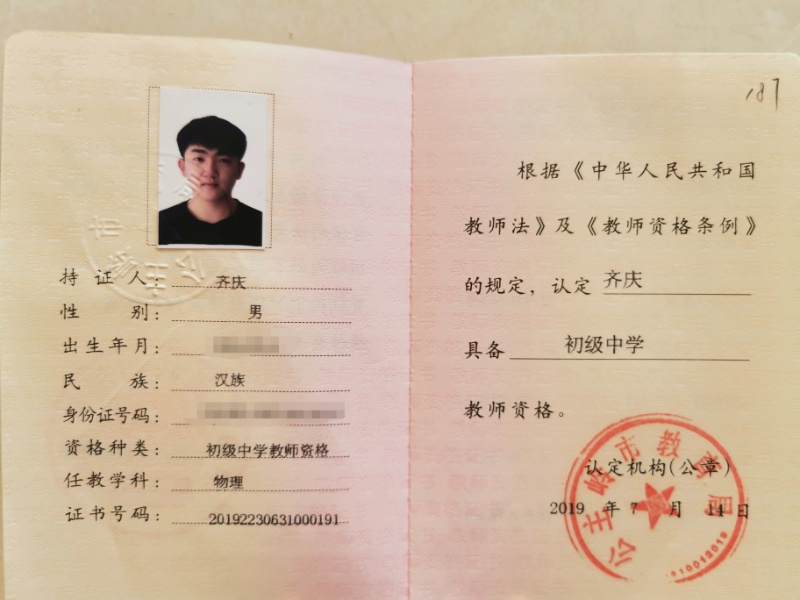 持证人：齐庆
性别：男
出生年月：
民族：汉族
身份证号码：
资格种类：初级中学教师资格
任教学科：物理
证书号码：20192230631000191
187
根据《中华人民共和国
教师法》及《教师资格条例》
的规定，认定 齐庆
具备 初级中学
教师资格。
认定机构(公章)
2019 年 7 月 14 日
公主岭市教育局